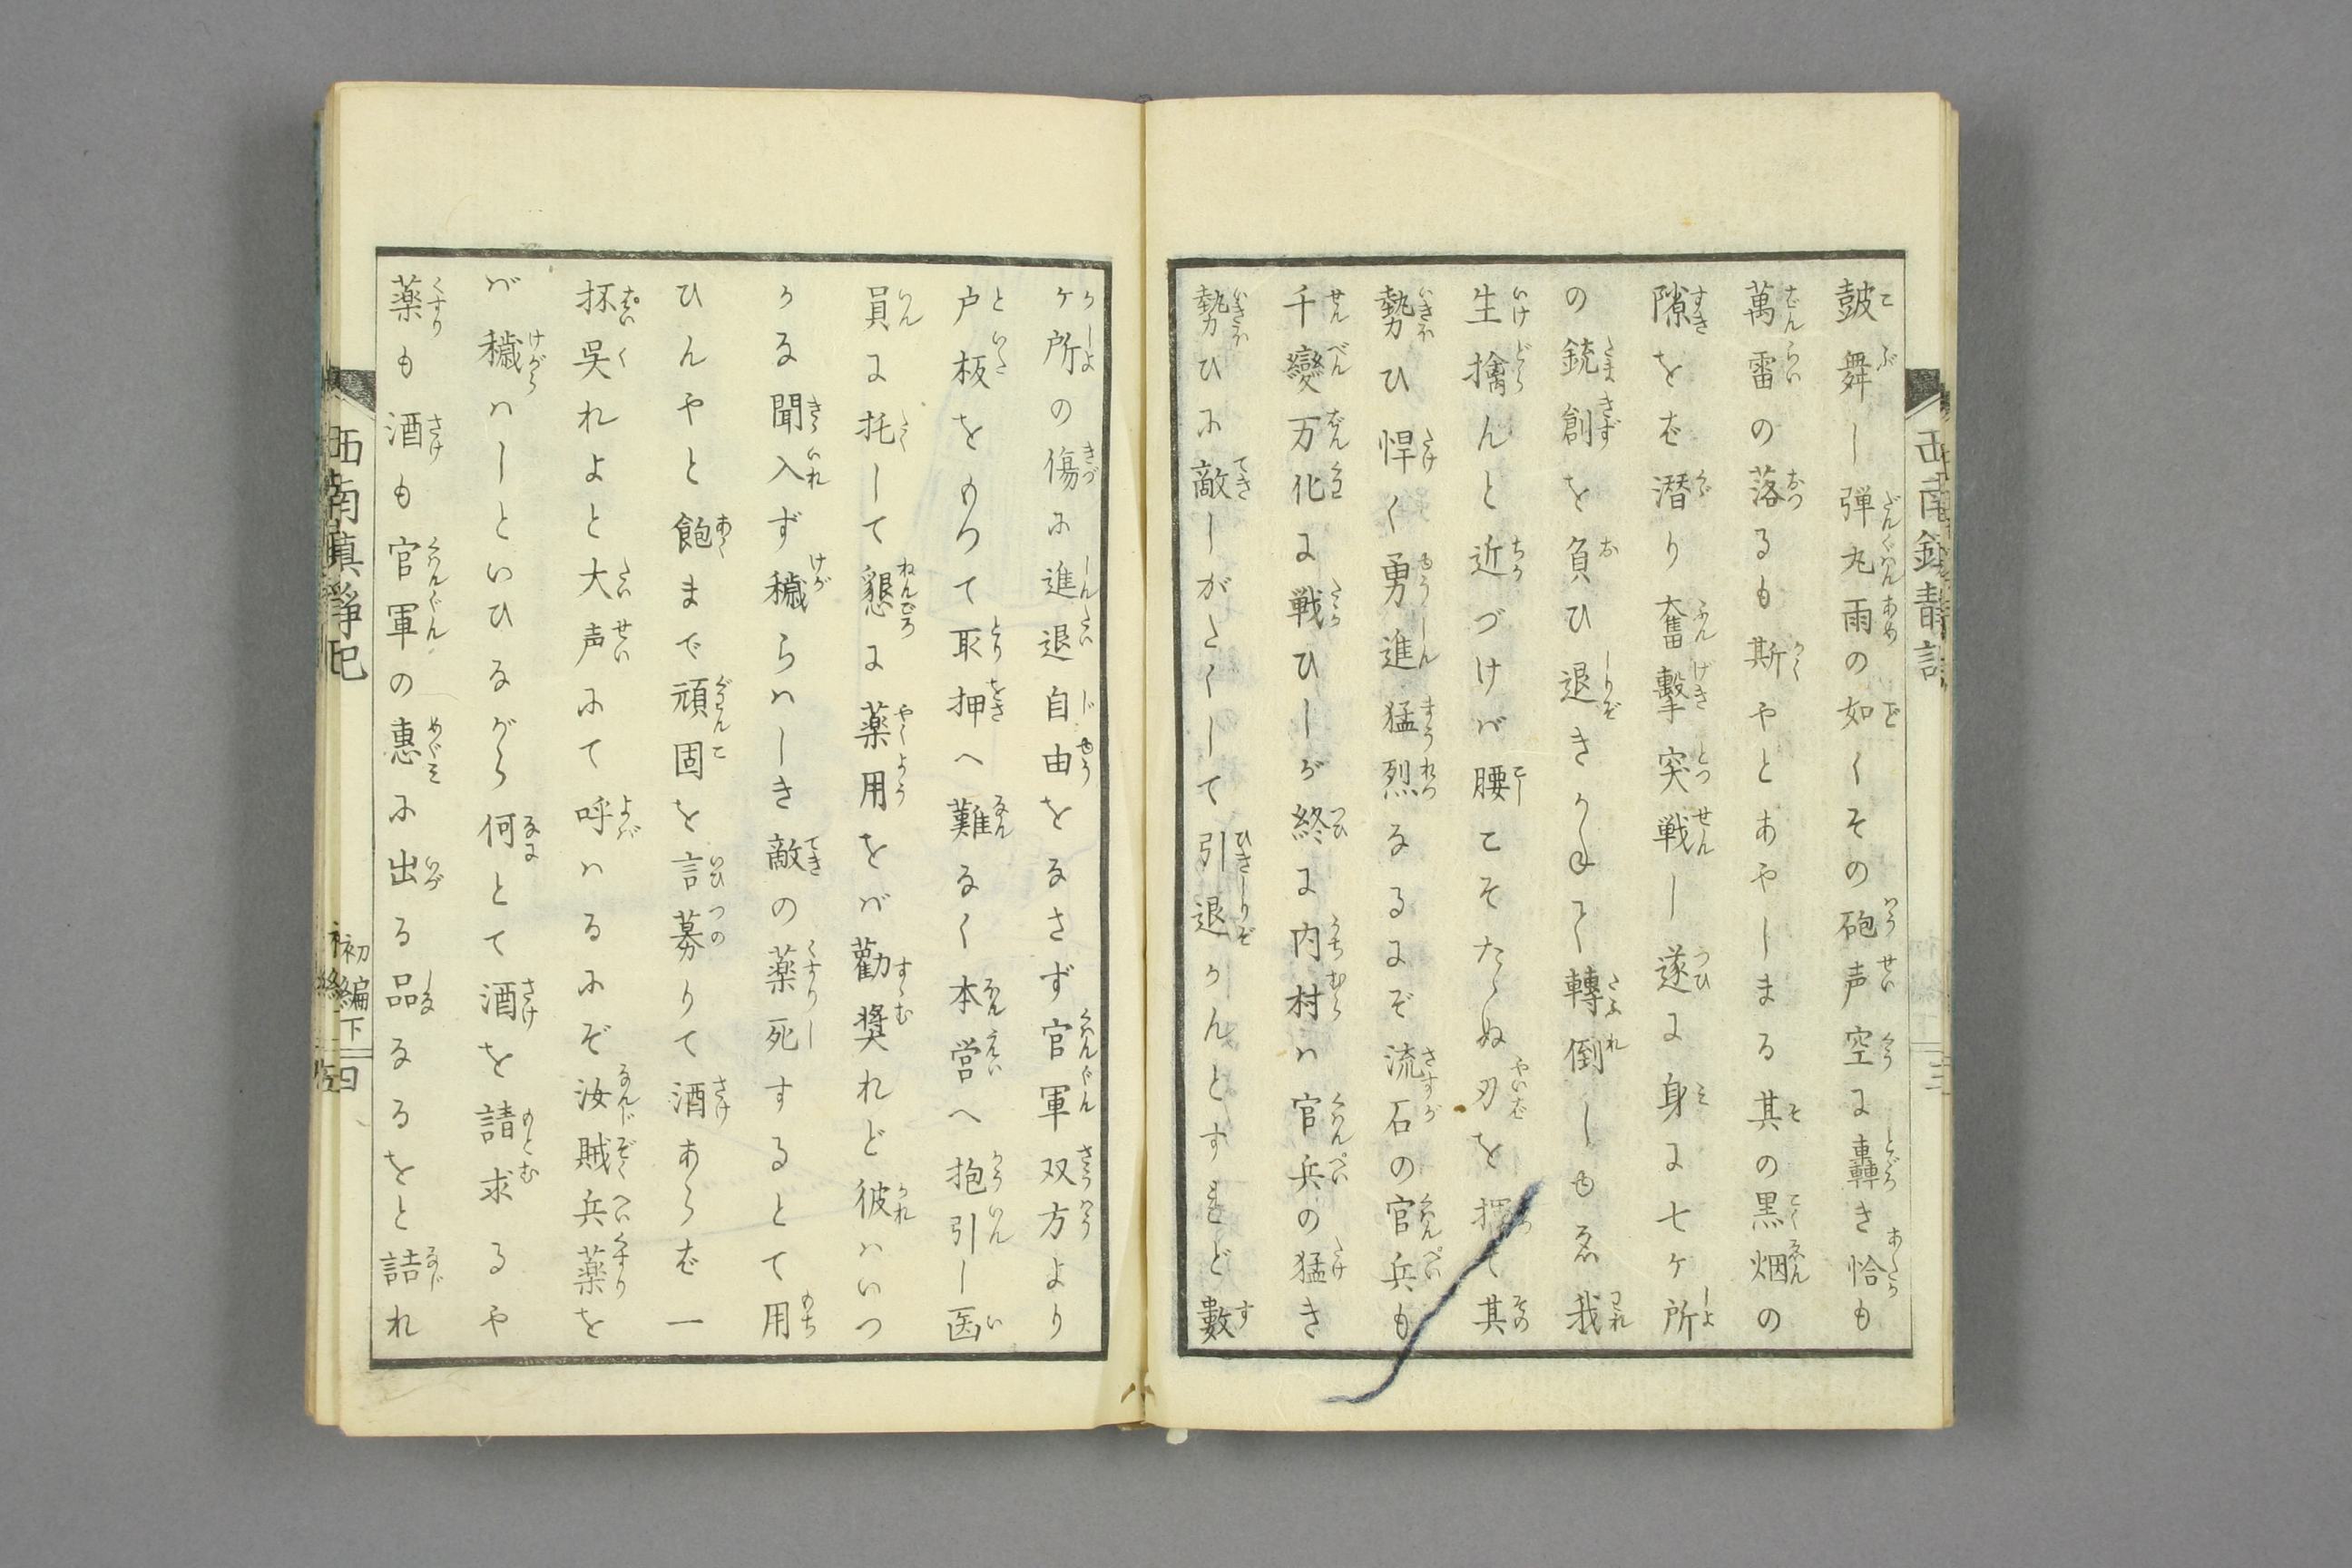 鼓舞し弾丸雨の如くその砲声空に轟き恰も
萬雷の落るも斯やとあやしまる其の黒烟の
隙をば潜り奮撃突戦し遂に身に七ケ所
の銃創を負ひ退きかねて轉倒しもゑ我
生擒んと近づけバ腰こそたゝぬ刃を揮て其
勢ひ悍く勇進猛烈なるにぞ流石の官兵も
千變万化に戦ひしが終に内村ハ官兵の猛き
勢ひに敵しがたくして引退かんとすれど數
ケ所の傷に進退自由をなさず官軍双方より
戸板をもつて取押へ難なく本営へ抱引し医
員に托して懇に薬用をバ勸奬れど彼ハいつ
かな聞入ず穢らハしき敵の薬死するとて用
ひんやと飽まで頑固を言募りて酒あらば一
抔呉れよと大声にて呼ハるにぞ汝賊兵薬を
バ穢ハしといひながら何とて酒を請求るや
薬も酒も官軍の惠に出る品なるをと詰れ
西南鎮静記
初編下
四